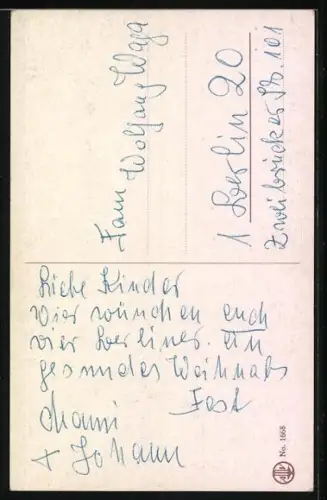 Fam Wolfgang Waga
1 Berlin 20
Zweibrücker Str. 101
Liebe Kinder
Wier wünchen euch
vier Berliner. ein
gesundes Weihnats
Fest
Mami
+ Johann
No. 1668